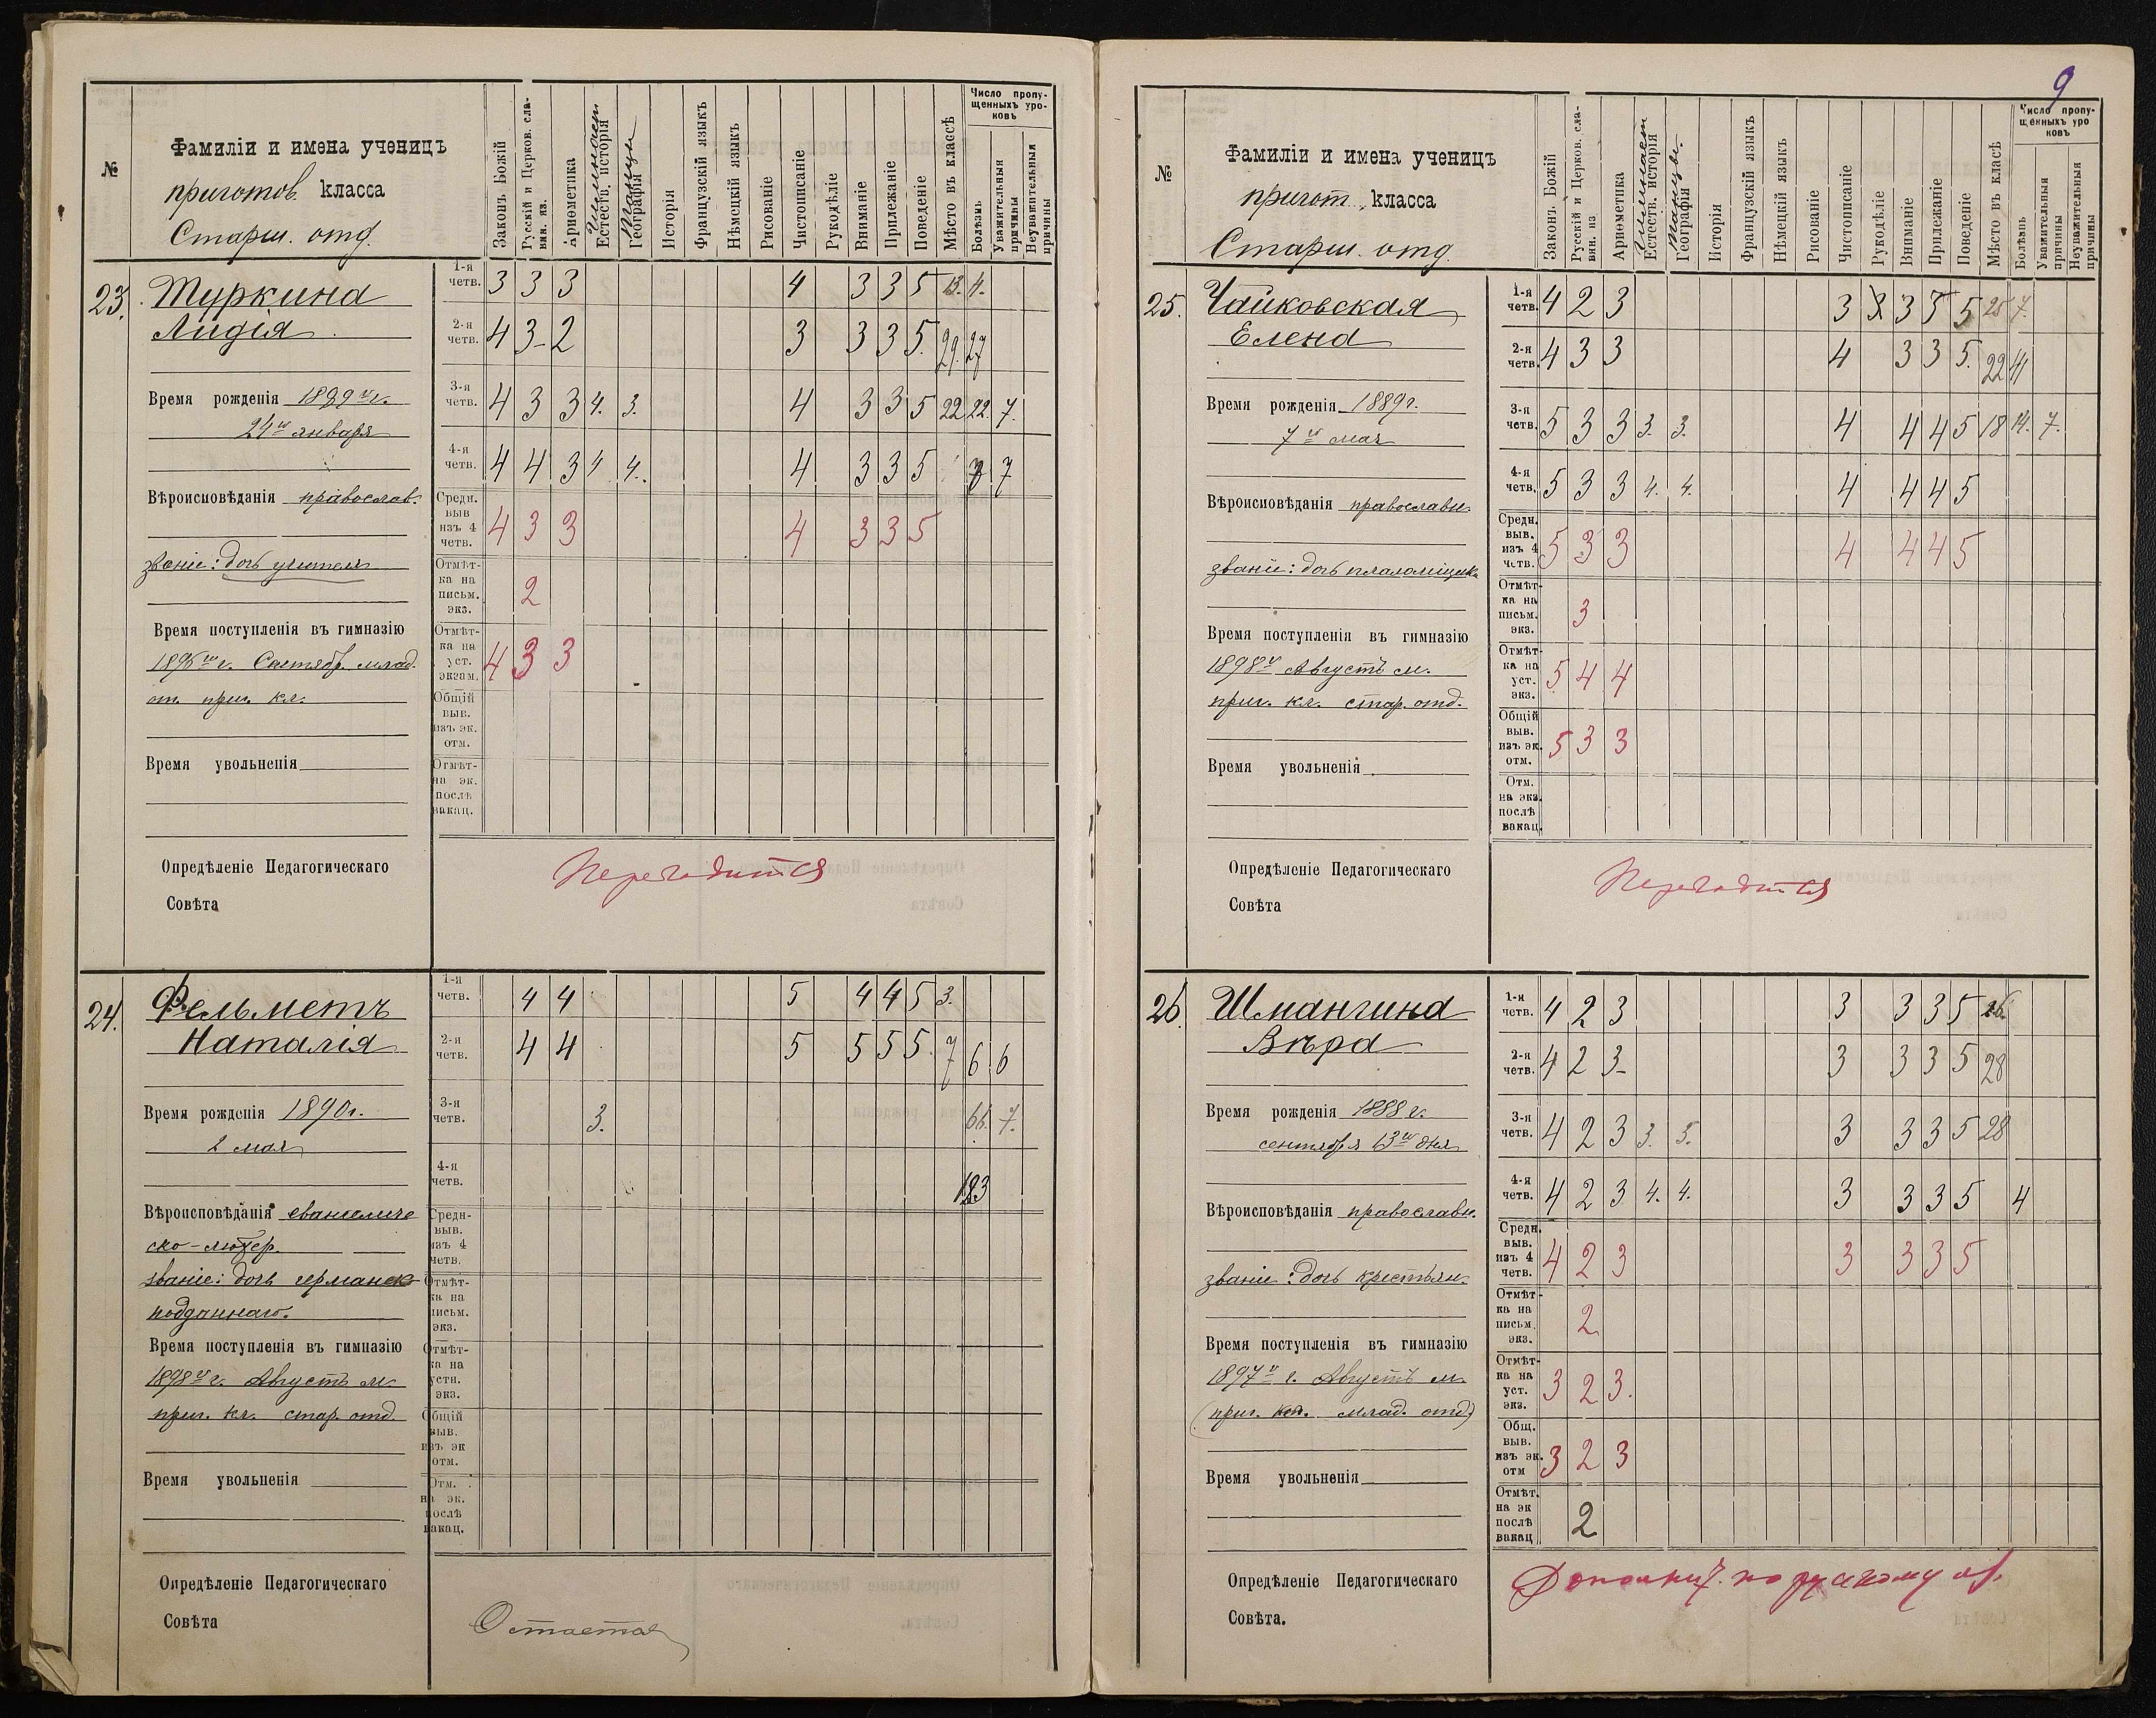 №
Фамиліи и имена ученицъ
приготов. класса
Старш. отд.
Законъ Божій
Русскій и Церков. сла-
вян. яз.
Ариѳметика
Гимнаст
Естеств. исторія
Танцы
Географія
Исторія
Французскій языкъ
Нѣмецкій языкъ
Рисованіе
Чистописаніе
Рукодѣліе
Вниманіе
Прилежаніе
Поведеніе
Мѣсто въ классѣ
Число пропу-
щенныхъ уро-
ковъ
Болѣзнь
Уважительныя
причины
Неуважительныя
причины
23. Туркина
Лидія
Время рожденія 1889 г.
24го января
Вѣроисповѣданія православ.
званіе: дочь учителя
Время поступленія въ гимназію
Сентябр. млад.
от. приг. кл.
Время увольненія
1-я четв. 3 3 3 4 3 3 5 13. 4.
2-я четв. 4 3- 2 3 3 3 5. 29. 27
3-я четв. 4 3 3 4. 3. 4 3 3 5 22 22. 7.
4-я четв. 4 4 3 4 4. 4 3 3 5 7
Средн. выв изъ 4 четв. 4 3 3 4 3 3 5
Отмѣт-ка на письм. экз. 2
Отмѣт-ка на уст. экзам. 4 3 3
Общій выв. изъ эк. отм.
Отмѣт-на эк. послѣ вакац.
Опредѣленіе Педагогическаго
Совѣта
Переводится
24. Фельметъ
Наталія
Время рожденія 1890 г.
2 мая
Вѣроисповѣданія евангеличе
ско-лютер.
званіе: дочь германск
подданнаго.
Время поступленія въ гимназію
1898го г. Августъ м.
приг. кл. стар. отд.
Время увольненія
1-я четв. 4 4 5 4 4 5 3.
2-я четв. 4 4 5 5 5 5. 7 6 6
3-я четв. 3. 66. 7.
4-я четв. 183
Средн- выв. изъ 4 четв.
Отмѣт-ка на письм. экз.
Отмѣт-ка на устн. экз.
Общій выв. изъ эк отм.
Отм. на эк. послѣ вакац.
Опредѣленіе Педагогическаго
Совѣта
Остается
9
№
Фамиліи и имена ученицъ
пригот. класса
Старш. отд.
Законъ Божій
Русскій и Церков. сла-
вян. яз
Ариѳметика
Гимнаст
Естеств. исторія
Танцы.
Географія
Исторія
Французскій языкъ
Нѣмецкій языкъ
Рисованіе
Чистописаніе
Рукодѣліе
Вниманіе
Прилежаніе
Поведеніе
Мѣсто въ класѣ
Число пропу-
щенныхъ уро
ковъ
Болѣзнь
Уважительныя
причины
Неуважительныя
причины
25. Чайковская
Елена
Время рожденія 1889 г.
7го мая
Вѣроисповѣданія православн.
званіе: дочь псаломщика
Время поступленія въ гимназію
1898го Августъ м.
приг. кл. стар. отд.
Время увольненія
1-я четв. 4 2 3 3 3 3 5 5 25 7.
2-я четв. 4 3 3 4 3 3 5. 22 41
3-я четв. 5 3 3 3. 3. 4 4 4 5 18 14. 7.
4-я четв. 5 3 3 4. 4. 4 4 4 5
Средн. выв. изъ 4 четв. 5 3 3 4 4 4 5
Отмѣт-ка на письм. экз. 3
Отмѣт-ка на уст. экз. 5 4 4
Общій выв. изъ эк. отм. 5 3 3
Отм. на экз. послѣ вакац.
Опредѣленіе Педагогическаго
Совѣта
Переводится
26. Шмангина
Вѣра
Время рожденія 1888 г.
сентября 13го дня
Вѣроисповѣданія православн.
званіе: дочь крестьян.
Время поступленія въ гимназію
1897го г. Августъ м.
(приг. кл. млад. отд)
Время увольненія
1-я четв. 4 2 3 3 3 3 5 26.
2-я четв. 4 2 3- 3 3 3 5 28
3-я четв. 4 2 3 3. 3. 3 3 3 5 28
4-я четв. 4 2 3 4. 4. 3 3 3 5 4
Средн. выв. изъ 4 четв. 4 2 3 3 3 3 5
Отмѣт-ка на письм. экз. 2
Отмѣт-ка на уст. экз. 3 2 3.
Общ. выв. изъ эк. отм 3 2 3
Отмѣт. на эк послѣ вакац 2
Опредѣленіе Педагогическаго
Совѣта.
по русскому яз.